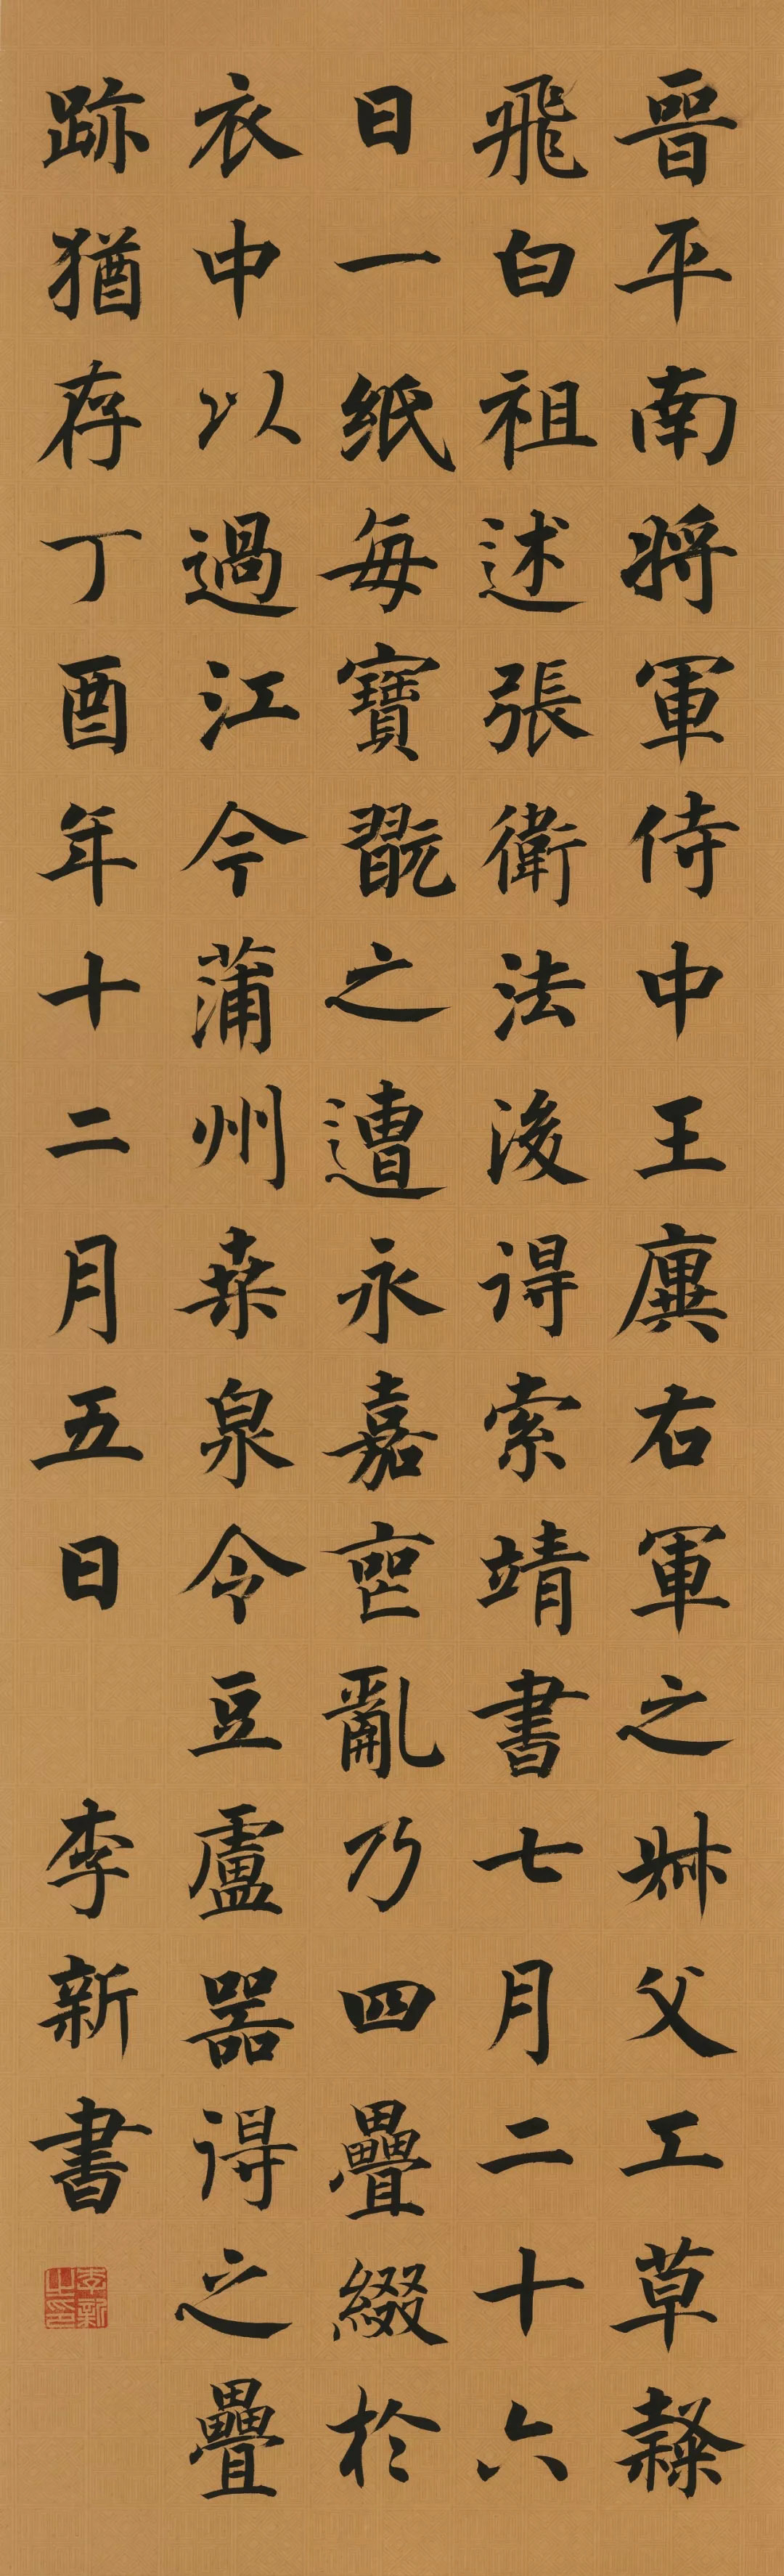 晉平南將軍侍中王廙右軍之叔父工草隸
飛白祖述張衛法後得索靖書七月二十六
日一紙每寶翫之遭永嘉喪亂乃四疊綴於
衣中以過江今蒲州桑泉令豆盧器得之疊
跡猶存丁酉年十二月五日 李新書
李新之印